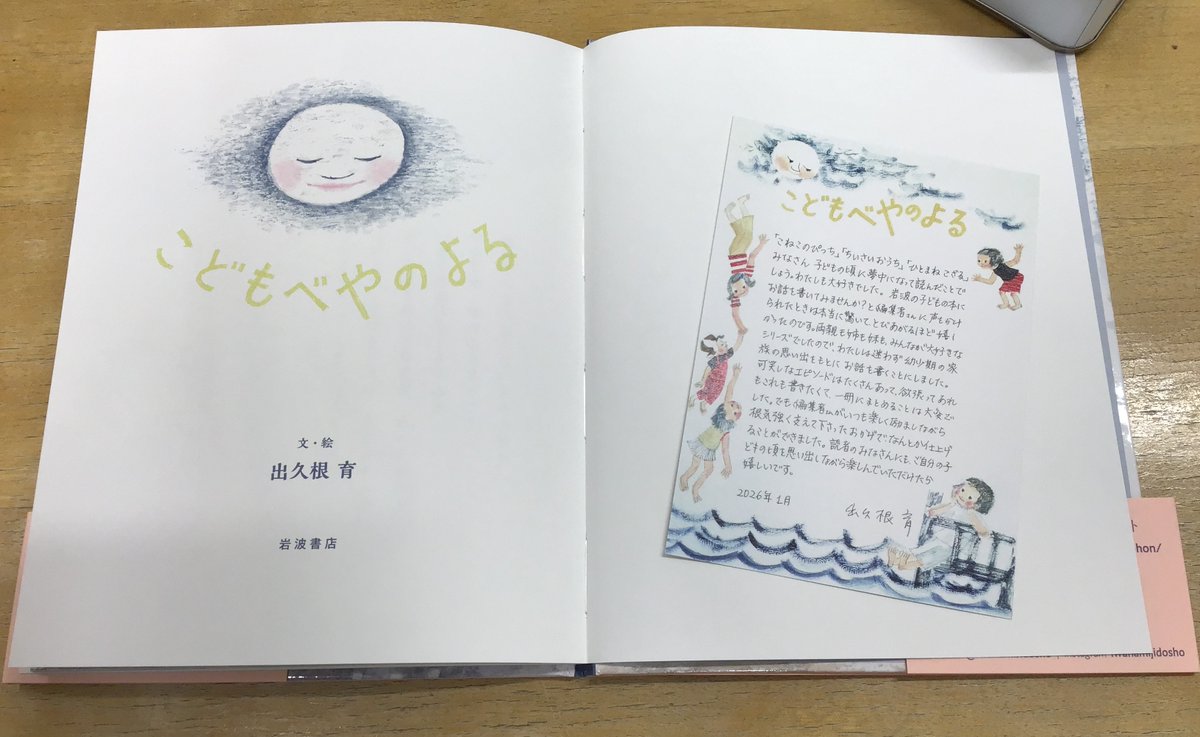 こどもべやのよる
文・絵
出久根 育
岩波書店
こどもべやのよる
「こねこのぴっち」「ちいさいおうち」「ひとまねこざる」
みなさん 子どもの頃に夢中になって読んだことで
しょう。わたしも大好きでした。岩波の子どもの本に
お話を書いてみませんか?と編集者さんに声をかけ
られたときは本当に驚いて、とびあがるほど嬉し
かったのです。両親も姉も妹も、みんなが大好きな
シリーズでしたので、わたしは迷わず幼少期の家
族の思い出をもとに お話を書くことにしました。
可笑しなエピソードはたくさんあって、欲張ってあれ
もこれも書きたくて、一冊にまとめることは大変で
した。でも編集者さんがいつも楽しく励ましながら
根気強く支えて下さったおかげで、なんとか仕上げ
ることができました。読者のみなさんにも、ご自分の子
どもの頃を思い出しながら楽しんでいただけたら
嬉しいです。
2026年1月
出久根 育
hon/
jidosho